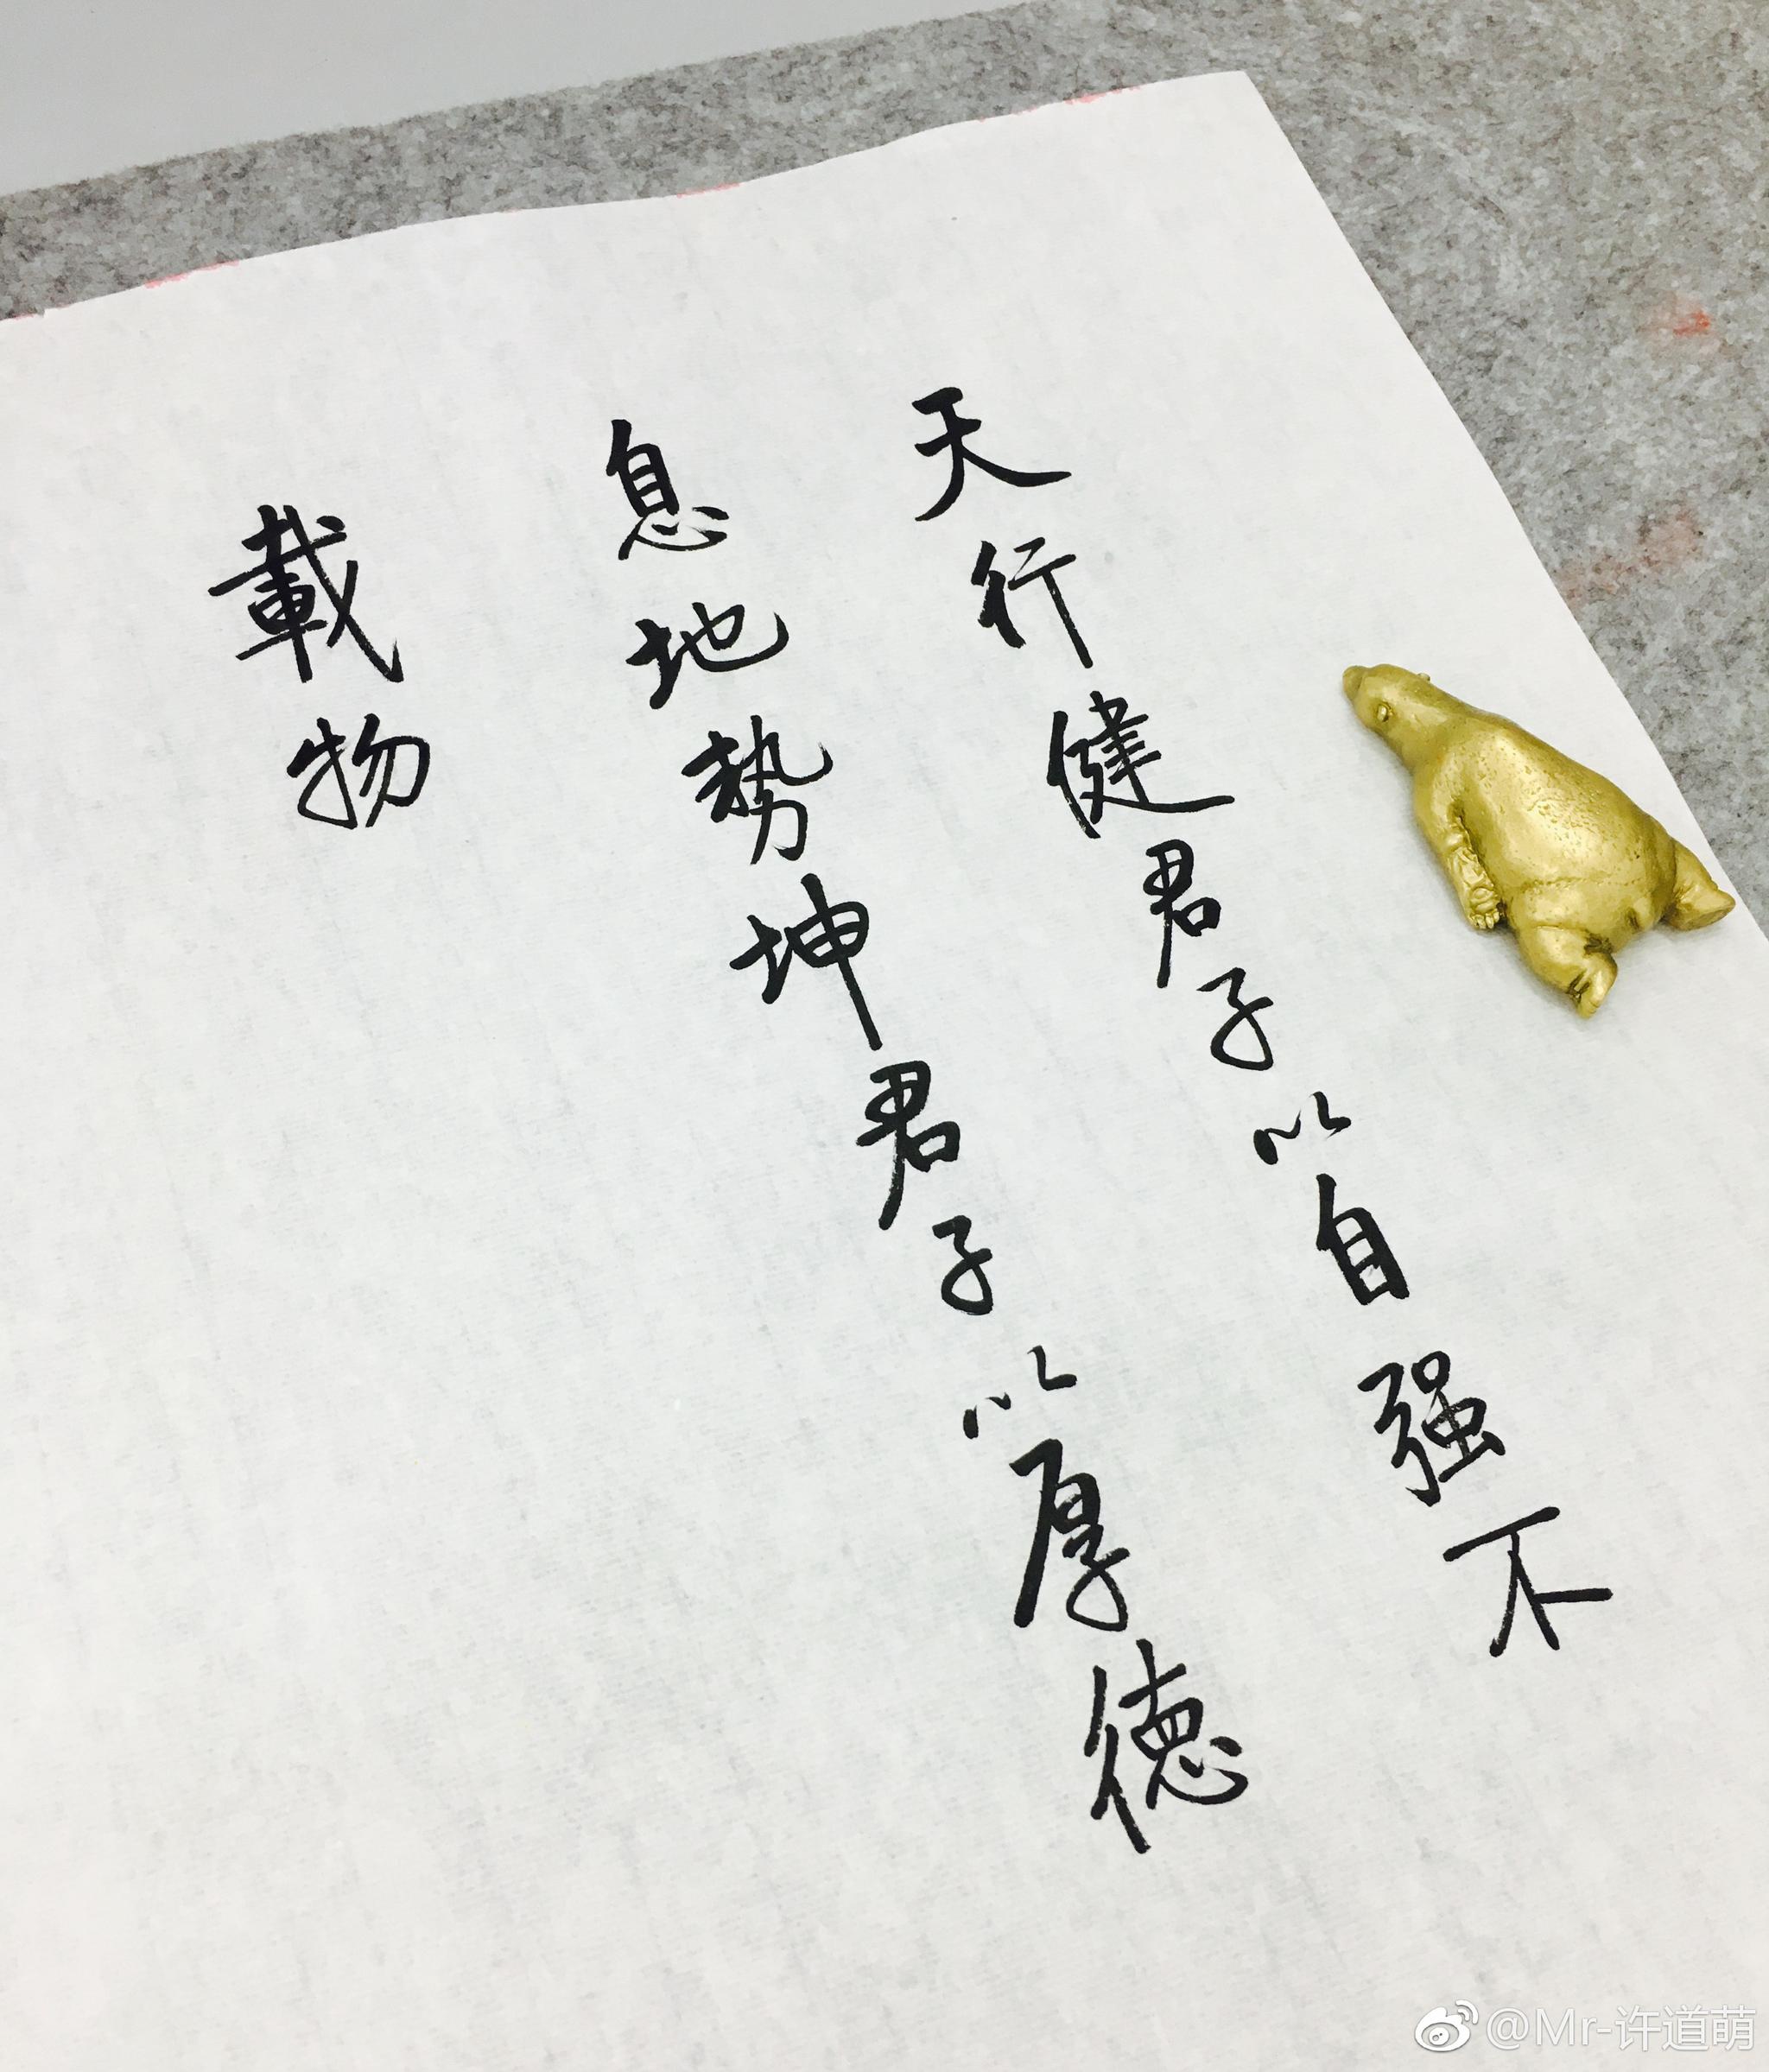 天行健君子以自强不
息地势坤君子以厚德
載物
@Mr-许道萌